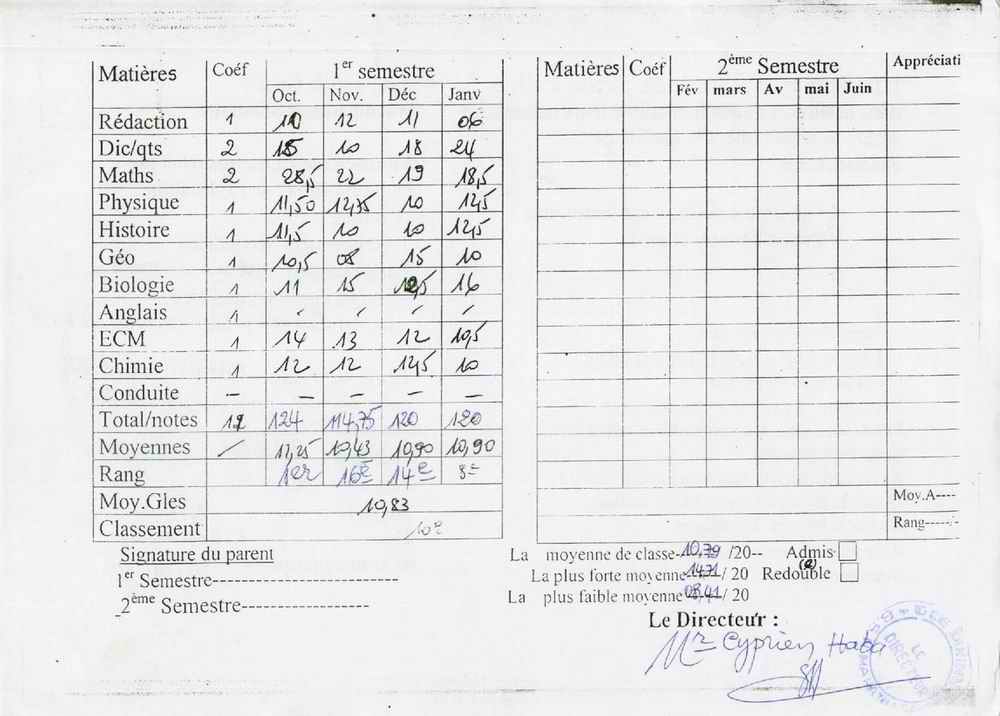 Matières Coéf 1er semestre
Oct. Nov. Déc Janv
Rédaction 1 10 12 11 06
Dic/qts 2 15 10 18 24
Maths 2 28,5 22 19 18,5
Physique 1 11,50 12,75 10 12,5
Histoire 1 11,5 10 10 12,5
Géo 1 10,5 08 15 10
Biologie 1 11 15 12,5 16
Anglais 1 / / / /
ECM 1 14 13 12 10,5
Chimie 1 12 12 12,5 10
Conduite – – – – –
Total/notes 124 114,75 120 120
Moyennes / 11,25 10,43 10,90 10,90
Rang 1er 16e 14e 8e
Moy.Gles 10,83
Classement 10e
Signature du parent
1er Semestre--------------------------
2ème Semestre------------------
Matières Coéf 2ème Semestre Appréciati
Fév mars Av mai Juin
Moy.A----
Rang------
La moyenne de classe 10,79 /20-- Admis
La plus forte moyenne / 20 Redouble (e)
La plus faible moyenne 08,41 / 20
Le Directeur :
Mr Cyprien Haba
LE DIRECTEUR